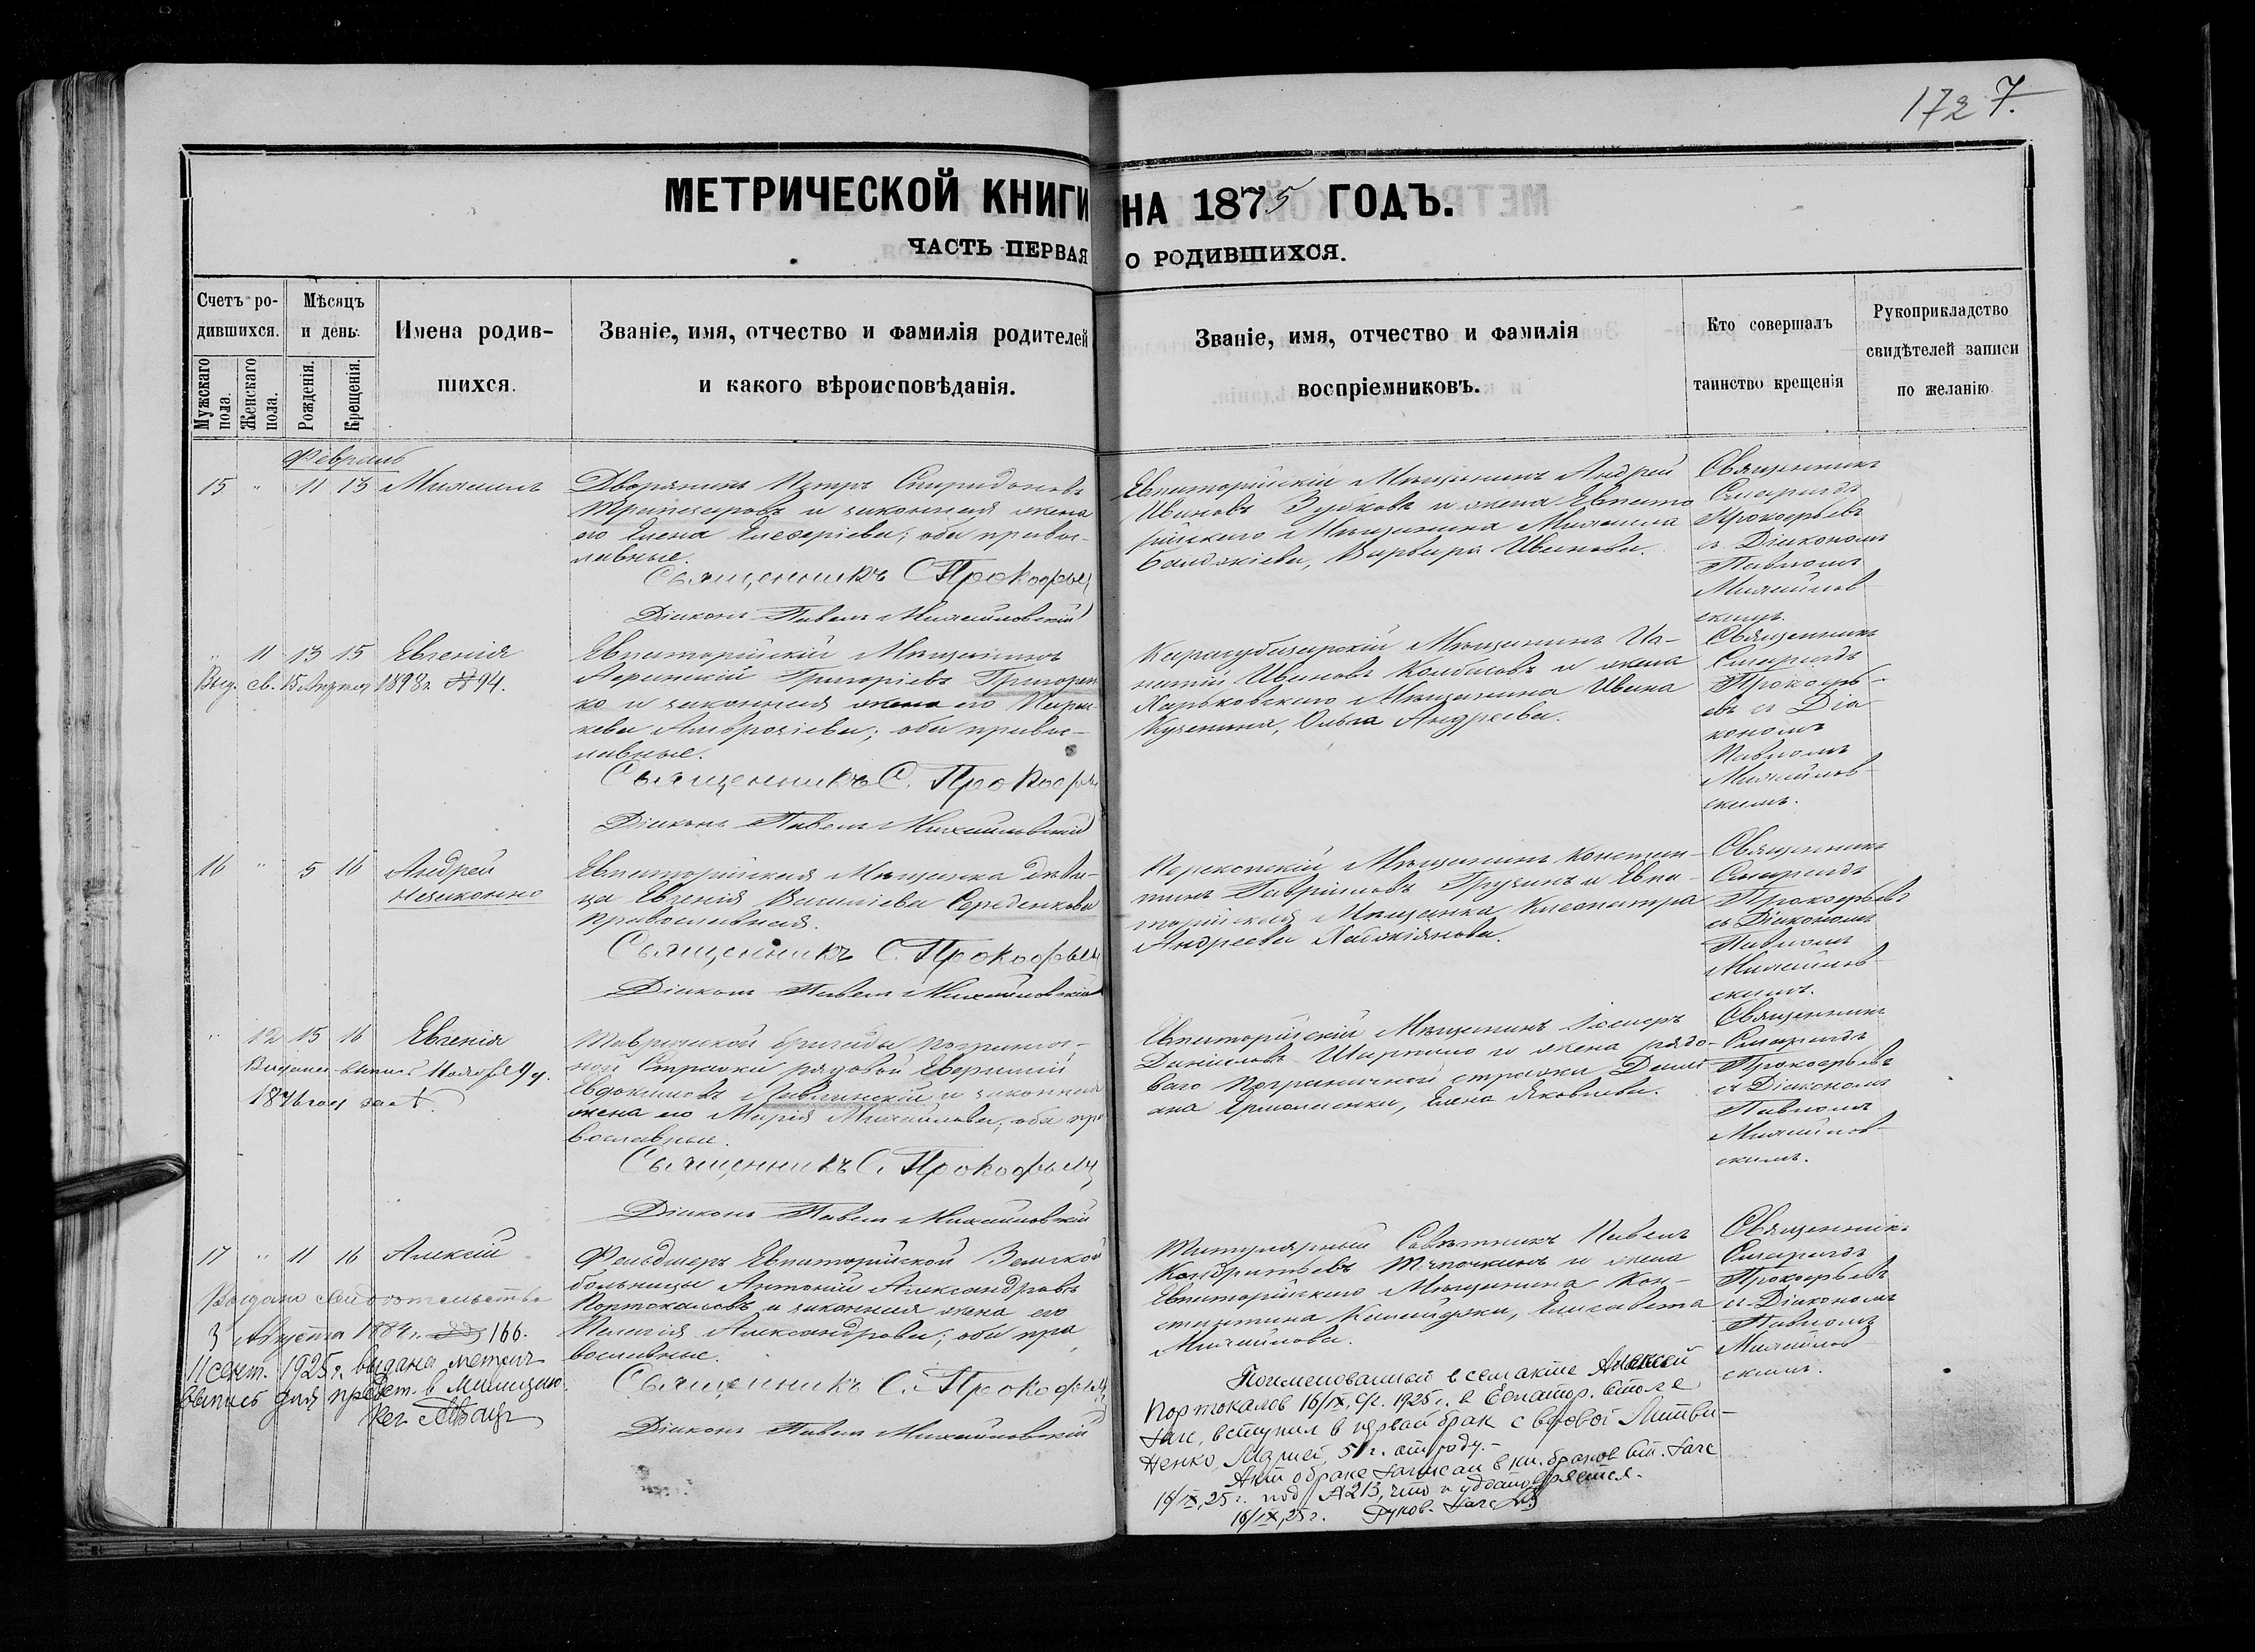 172 7.
МЕТРИЧЕСКОЙ КНИГИ НА 1875 ГОДЪ.
ЧАСТЬ ПЕРВАЯ О РОДИВШИХСЯ.
Счетъ ро-
дившихся.
Мужскаго пола.
Женскаго пола.
Мѣсяцъ
и день.
Рожденія.
Крещенія.
Имена родив-
шихся.
Званіе, имя, отчество и фамилія родителей
и какого вѣроисповѣданія.
Званіе, имя, отчество и фамилія
воспріемниковъ.
Кто совершалъ
таинство крещенія
Рукоприкладство
свидѣтелей записи
по желанію.
Февраль
15 " 11 13 Михаилъ
Дворянинъ Петръ Спиридоновъ
и законная жена
его Елена Елевѳеріева; оба правос-
лавные.
Священникъ С Прокофьев
Діаконъ Павелъ Михайловскій
Евпаторійскій Мѣщанинъ Андрей
Ивановъ Зубковъ и жена Евпато
рійскаго Мѣщанина Михаила
Балджіева, Варвара Иванова.
Священникъ
Смарагдъ
Прокофьевъ
съ Діакономъ
Павломъ
Михайлов-
скимъ.
" 11 13 15 Евгенія
Выд. св. 15 Апрѣля 1898 г. № 94.
Евпаторійскій Мѣщанинъ
Григоріевъ Григорен
ко и законная жена его Парас
кева Амвросіева; оба правос-
лавные.
Священникъ С. Прокофьев
Діаконъ Павелъ Михайловскій
Карасубазарскій Мѣщанинъ Иг-
натій Ивановъ Колбасовъ и жена
Харьковскаго Мѣщанина Ивана
Ольга Андреева.
Священникъ
Смарагдъ
Прокофь-
евъ съ Діа-
кономъ
Павломъ
Михайлов-
скимъ.
16 " 5 16 Андрей
незаконно
Евпаторійская Мѣщанка дѣви-
ца Евгенія Васильева Середенкова
православная.
Священникъ С. Прокофьев
Діаконъ Павелъ Михайловскій
Перекопскій Мѣщанинъ Констан-
тинъ Гавріиловъ Грузинъ и Евпа-
торійская Мѣщанка Клеопатра
Андреева
Священникъ
Смарагдъ
Прокофьевъ
съ Діакономъ
Павломъ
Михайлов-
скимъ.
" 12 15 16 Евгенія
1876 год за №
Таврической бригады погранич-
ной Стражи рядовой
Евдокимовъ и законная
жена его Марія Михайлова; оба пра
вославные.
Священникъ С. Прокофьев
Діаконъ Павелъ Михайловскій
Евпаторійскій Мѣщанинъ
Даніиловъ и жена рядо-
ваго пограничной стражи Деми
ана Ермоленки, Елена Яковлева.
Священникъ
Смарагдъ
Прокофьевъ
съ Діакономъ
Павломъ
Михайлов-
скимъ.
17 " 11 16 Алексій
Выдано свидѣтельство
3 Августа 1884 г. № 166.
11 сент. 1925 г. выдана метрич
выпись для предст. в милицию.
Фельдшеръ Евпаторійской Земской
больницы Антоній Александровъ
Портокаловъ и законная жена его
Пелагія Александрова; оба пра
вославные.
Священникъ С. Прокофьев
Діаконъ Павелъ Михайловскій
Титулярный Совѣтникъ Павелъ
Кондратьевъ и жена
Евпаторійскаго Мѣщанина Кон-
стантина Елисавета
Михайлова.
Священникъ
Смарагдъ
Прокофьевъ
съ Діакономъ
Павломъ
Михайлов
скимъ.
Поименованный в сем акте Алексей
Портокалов 16/IX, с/г. 1925 г. в Евпатор. столе
Загс, вступил в первый брак с вдовой Литви-
ненко, Марией, 51 г. от роду.-
Акт о браке записан в кн. браков Евп. Загс
16/IX, 25 г. под № 213, что и удостоверяется.
16/IX, 25 г. Руков. Загс